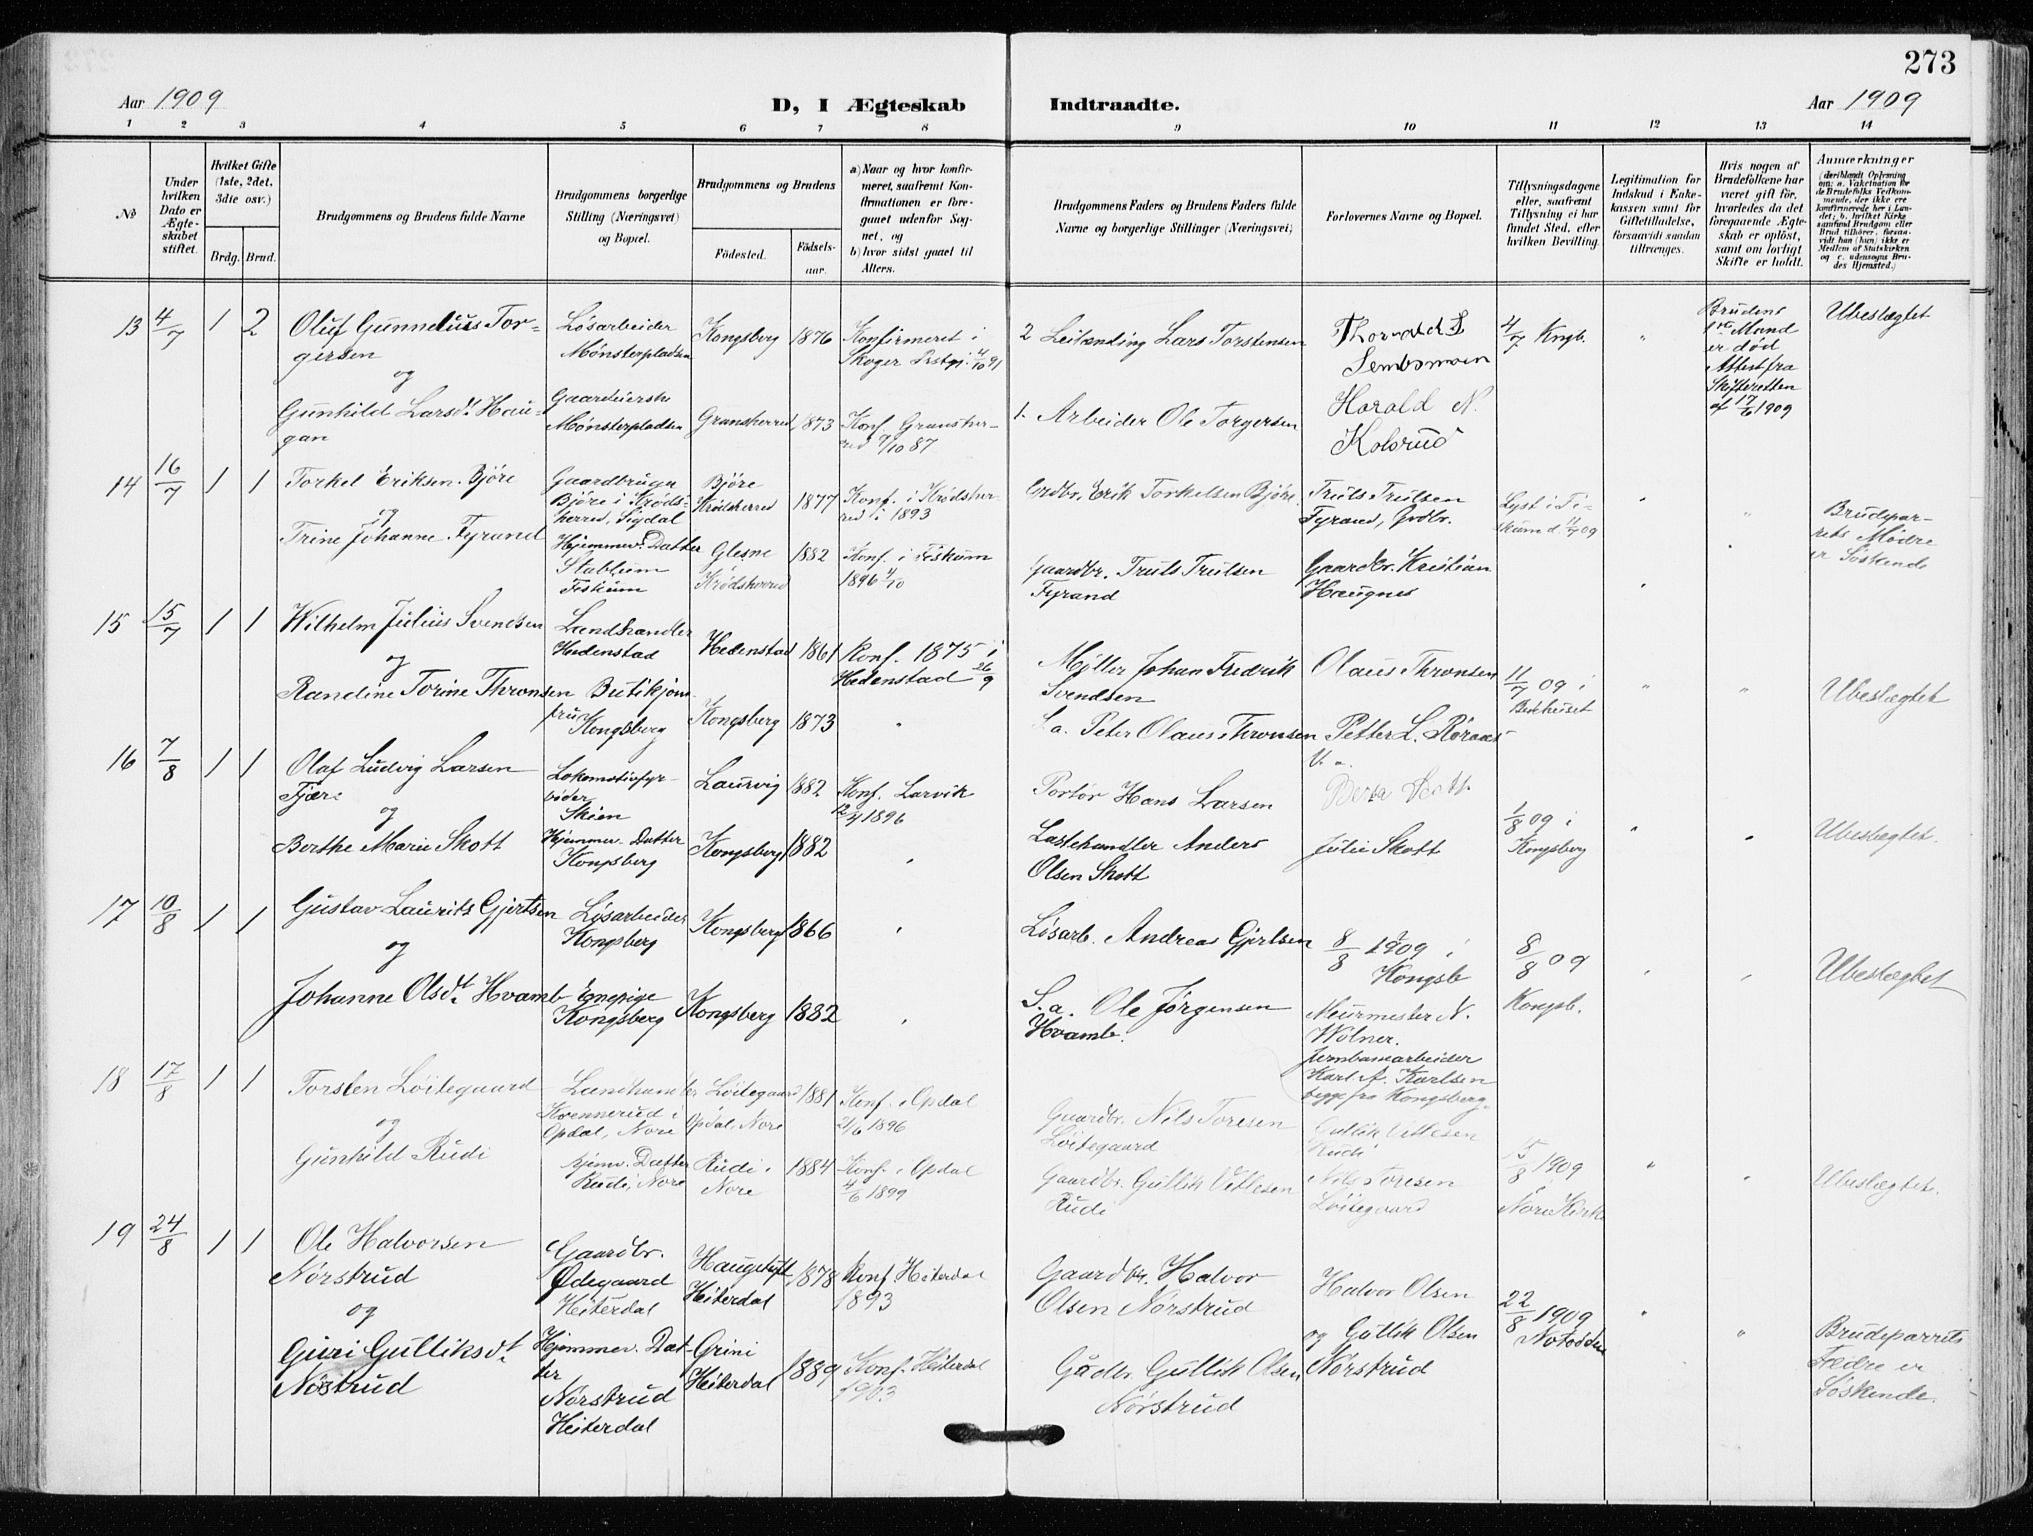 273
Aar 1909
D, I Ægteskab Indtraadte.
Aar 1909
1 2 3 4 5 6 7 8 9 10 11 12 13 14
No
Under hvilken Dato er Ægteskabet stiftet.
Hvilket Gifte (1ste, 2det, 3die osv.)
Brdg. Brud.
Brudgommens og Brudens fulde Navne
Brudgommens borgerlige Stilling (Næringsvei) og Bopæl.
Brudgommens og Brudens
Fødested.
Fødsels-aar.
a) Naar og hvor konfirmeret, saafremt Konfirmationen er foregaaet udenfor Sognet, og
b) hvor sidst gaaet til Alters.
Brudgommens Faders og Brudens Faders fulde Navne og borgerlige Stillinger (Næringsvei)
Forlovernes Navne og Bopæl.
Tillysningsdagene eller, saafremt Tillysning ei har fundet Sted, efter hvilken Bevilling.
Legitimation for Indskud i Enkekassen samt for Giftetilladelse, forsaavidt saadan tiltrænges.
Hvis nogen af Brudefolkene har været gift før, hvorledes da det foregaaende Ægteskab er opløst, samt om lovligt Skifte er holdt.
Anmærkninger
(deriblandt Oplysning om: a. Vakcination for de Brudefolks Vedkommende, der ikke ere konfirmerede her i Landet; b. hvilket Kirkesamfund Brudgom eller Brud tilhører, forsaavidt han (hun) ikke er Medlem af Statskirken og c. udensogns Brudes Hjemsted.)
13 4/7 1 2
Oluf Gunnelius Tor-
gersen
og
Gunhild Larsdt Hau-
gan
Løsarbeider
Mønsterpladsen
Mønsterpladsen
Kongsberg 1876
Gransherred 1873
Konfirmeret i
Skoger Prstgj. 4/10 91
Konf. Gransher-
red 9/10 87
2 Leilænding Lars Torstensen
1. Arbeider Ole Torgersen
Thorvald S
Sembsmoen
Harald N.
Kolsrud
4/7 Kngb.
"
Brudens
1ste Mand
er død
Attest fra
Skifteretten
af 17/6 1909
Ubeslægtet
14 16/7 1 1
Torkel Eriksen Bjøre
og
Trine Johanne Fyrand
Gaardbruger
Bjøre i Krøds-
herred, Sigdal
Hjemmev. Datter
Stablum
Fiskum
Bjøre
Krødsherred 1877
Glesne 1882
Krødsherred
Konf. i Krødsher-
red i 1893
Konf. i Fiskum
1896 4/10
Grdbr. Erik Torkelsen Bjøre
Gaardbr. Truls Trulsen
Fyrand
Truls Trulsen
Fyrand, Grdbr.
Gaardbr. Kristian
Haugnes
Lyst i Fi-
skum d. 11/7 09
Brudepar-
rets Mødre
er Søskende
15 15/7 1 1
Wilhelm Julius Svendsen
og
Randine Torine Thronsen
Landhandler
Hedenstad
Butikjom
fru
Kongsberg
Hedenstad 1861
Kongsberg 1873
Konf. 1875 i
Hedenstad 26/9
"
Møller Johan Fredrik
Svendsen
S. a. Peter Olaus Thronsen
Olaus Thronsen
Petter L. Röraas
11/7 09 i
Bedehuset
" "
Ubeslægtet
16 7/8 1 1
Olaf Ludvig Larsen
Tjære
og
Berthe Marie Skott
Lokomotivfyr-
bøder
Skien
Hjemmev. Datter
Kongsberg
Laurvig 1882
Kongsberg 1882
Konf. Larvik
12/4 1896
Portør Hans Larsen
Lastehandler Anders
Olsen Skott
Julie Skott
1/8 09 i
Kongsberg
"
Ubeslægtet.
17 10/8 1 1
Gustav Laurits Gjertsen
og
Johanne Olsdt Hvamb
Løsarbeider
Kongsberg
Kongsberg
Kongsberg 1866
Kongsberg 1882
Løsarb. Andreas Gjertsen
S. a. Ole Jørgensen
Hvamb.
8/8 1909 i
Kongsb
Murmester N.
Wölner.
Jernbanearbeider
Karl A. Karlsen
begge fra Kongsberg
8/8 09
Kongsb.
Ubeslægtet
18 17/8 1 1
Torsten Løitegaard
og
Gunhild Rudi
Landhandler
Kvennerud i
Opdal, Nore
Hjemv. Datter
Rudi, Nore
Løitegaard 1881
Opdal, Nore
Rudi i 1884
Nore
Konf. i Opdal
21/6 1896
Konf. i Opdal
4/6 1899
Gaardbr. Nils Toresen
Løitegaard
Gaardbr. Gullik Vetlesen
Rudi
Gullik Vetlesen
Rudi
Nils Toresen
Løitegaard
15/8 1909
Nore Kirke
"
Ubeslægtet.
19 24/8 1 1
Ole Halvorsen
Nørstrud
og
Guri Gulliksdt.
Nøstrud
Gaardbr.
Ødegaard
Heiterdal
Hjemmev. Dat-
ter
Nørstrud
Heiterdal
Haugstuft 1878
Heiterdal
Grini 1889
Heiterdal
Konf. Heiterdal
1893
Konf. Heiterdal
1903
Gaardbr. Halvor
Olsen Nørstrud
Gaardbr. Gullik Olsen
Nørstrud
Halvor Olsen
og Gullik Olsen
Nørstrud
22/8 1909
Notodden
"
Brudeparrets
Fædre er
Søskende.